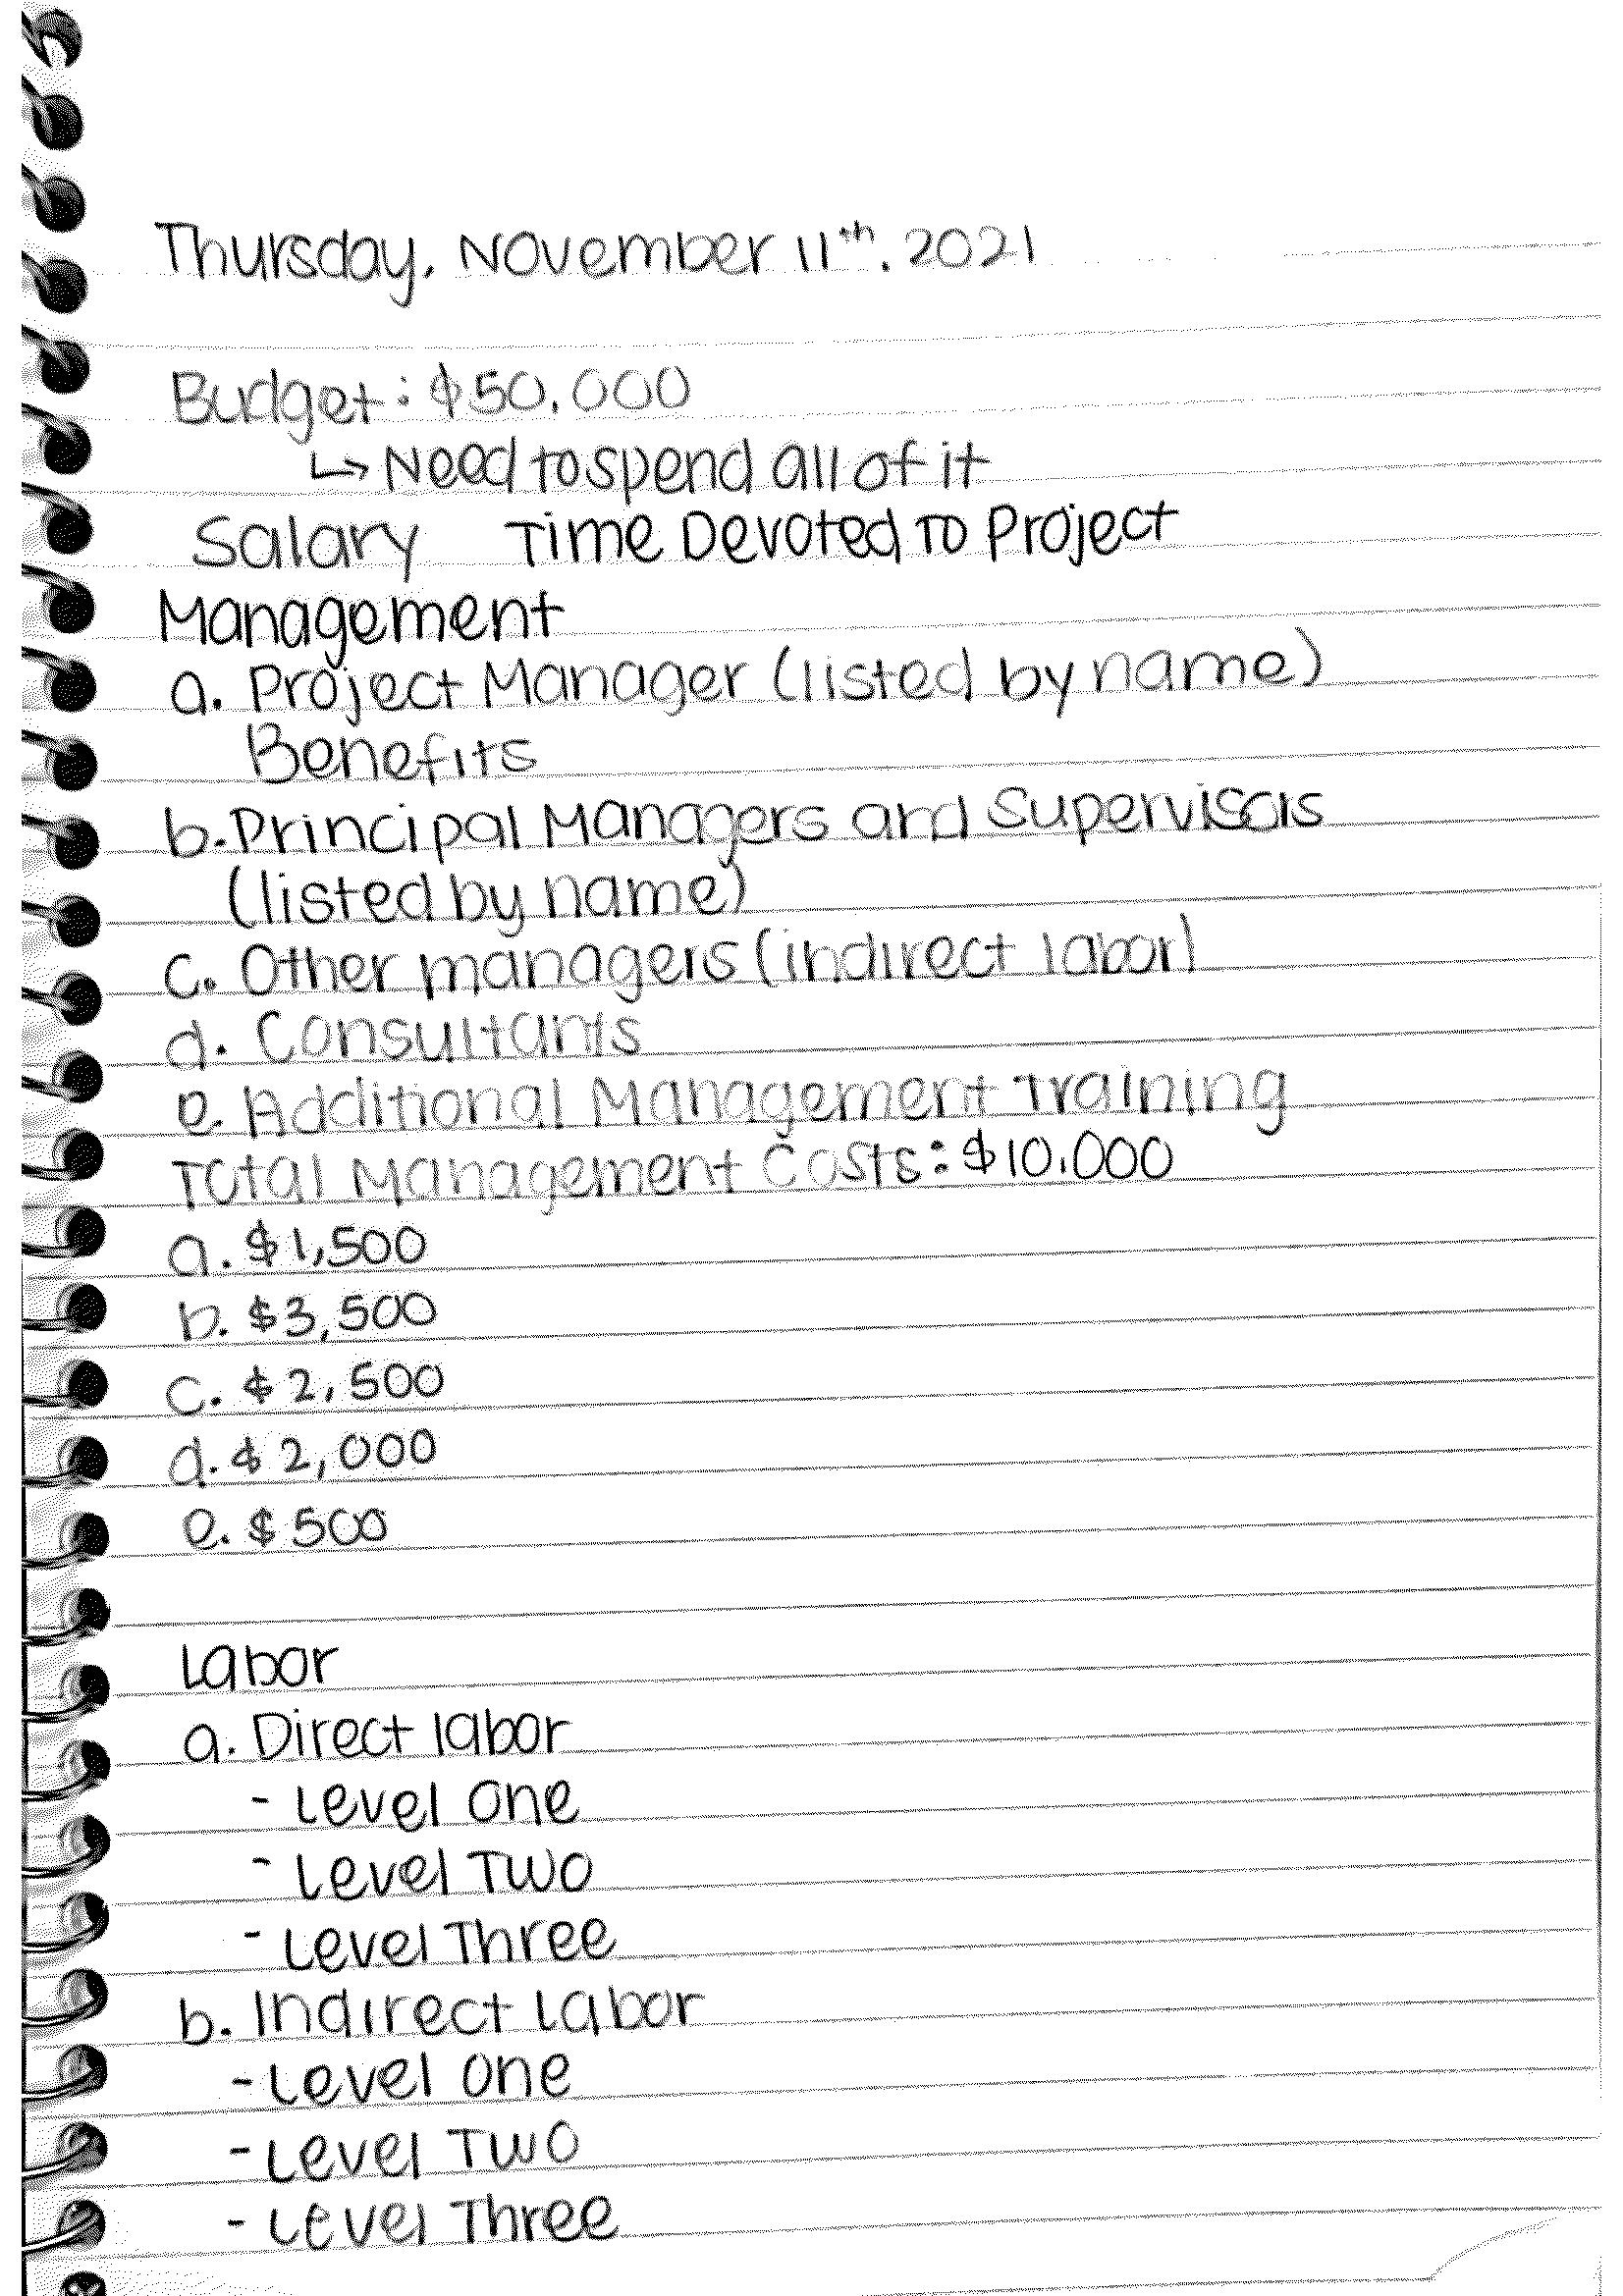 Thursday, November 11th, 2021
Budget: $50,000
↳ Need to spend all of it
Salary Time Devoted To Project
Management
a. Project Manager (listed by name)
Benefits
b. Principal Managers and Supervisors
(listed by name)
c. Other managers (indirect labor)
d. Consultants
e. Additional Management Training
Total Management Costs: $10,000
a. $1,500
b. $3,500
c. $2,500
d. $2,000
e. $500
Labor
a. Direct labor
- Level One
- Level Two
- Level Three
b. Indirect Labor
- Level One
- Level Two
- Level Three